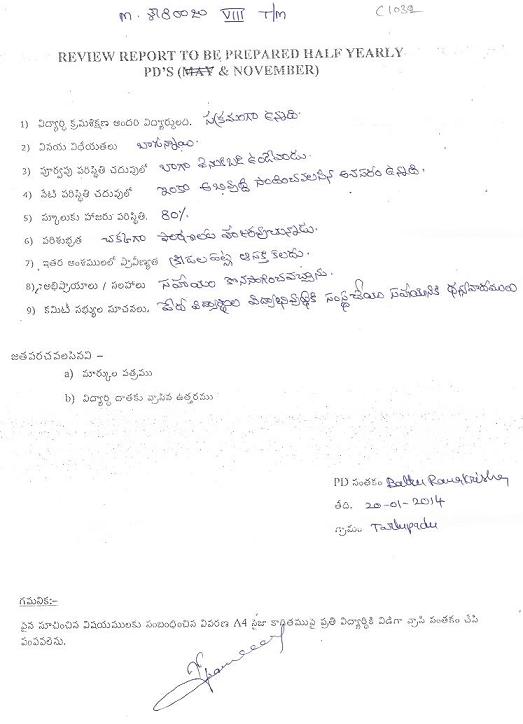 M. శౌరిరాజు VIII T/M
C1032
REVIEW REPORT TO BE PREPARED HALF YEARLY
PD'S (MAY & NOVEMBER)
1) విద్యార్థి క్రమశిక్షణ అందరి విద్యార్థులది. సక్రమంగా ఉన్నది.
2) వినయ విధేయతలు బాగున్నాయి.
3) పూర్వపు పరిస్థితి చదువులో బాగా వెనుకబడి ఉండేవాడు.
4) నేటి పరిస్థితి చదువులో ఇంకా అభివృద్ధి సాధించవలసిన అవసరం ఉన్నది.
5) స్కూలుకు హాజరు పరిస్థితి. 80%
6) పరిశుభ్రత చక్కగా
7) ఇతర అంశములలో ప్రావీణ్యత క్రీడల పట్ల ఆసక్తి కలదు.
8) అభిప్రాయాలు / సలహాలు సహాయం కొనసాగించవచ్చును.
9) కమిటీ సభ్యుల సూచనలు. పేద విద్యార్థుల విద్యాభివృద్ధికి సంస్థ చేయు సహాయానికి ధన్యవాదములు
జతపరచవలసినవి –
a) మార్కుల పత్రము
b) విద్యార్థి దాతకు వ్రాసిన ఉత్తరము
PD సంతకం Battu Ramakrishna
తేది. 20-01-2014
గ్రామం Tarlupadu
గమనిక:-
పైన సూచించిన విషయములకు సంబంధించిన వివరణ A4 సైజు కాగితముపై ప్రతి విద్యార్థికి విడిగా వ్రాసి సంతకం చేసి
పంపవలెను.